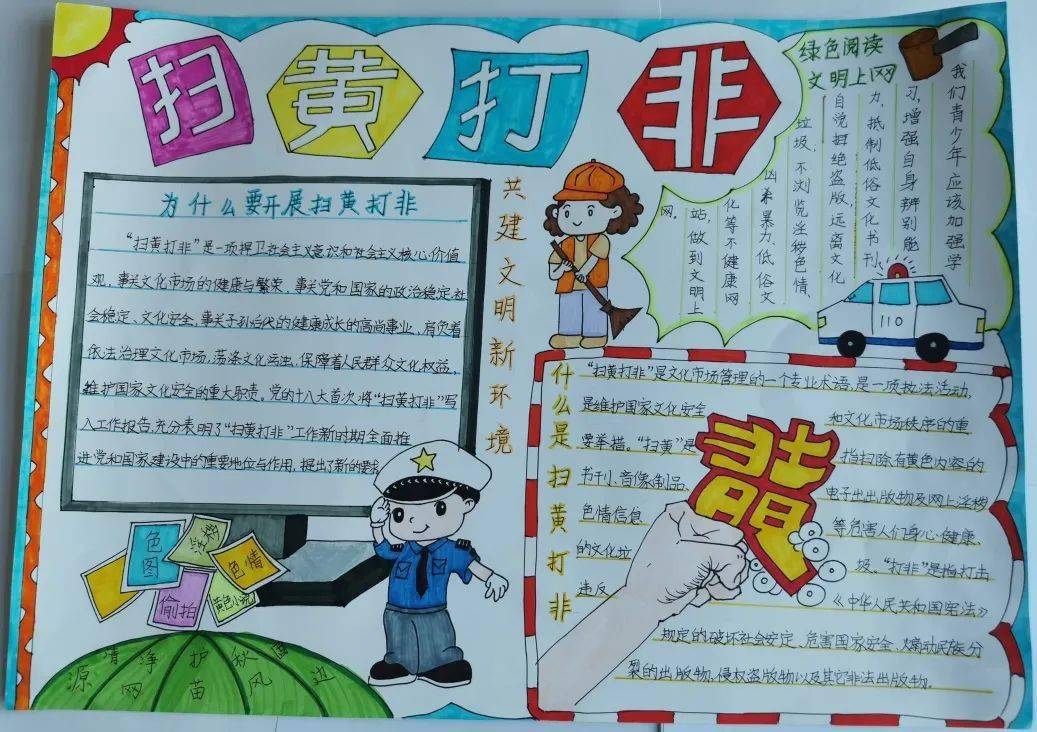 扫黄打非
绿色阅读
文明上网
我们青少年应该加强学
习,增强自身辨别能
力,抵制低俗文化书刊
自觉拒绝盗版,远离文化
垃圾,不浏览淫秽色情、
凶杀暴力、低俗文
化等不健康网
站,做到文明上
网。
为什么要开展扫黄打非
“扫黄打非”是一项捍卫社会主义意识和社会主义核心价值
观,事关文化市场的健康与繁荣,事关党和国家的政治稳定,社
会稳定、文化安全,事关子孙后代的健康成长的高尚事业,肩负着
依法治理文化市场,荡涤文化,保障着人民群众文化权益,
维护国家文化安全的重大职责。党的十八大首次将“扫黄打非”写
入工作报告,充分表明了“扫黄打非”工作新时期全面推
进党和国家建设中的重要地位与作用,提出了新的要求
共建文明新环境
110
什么是扫黄打非
“扫黄打非”是文化市场管理的一个专业术语,是一项执法活动,
是维护国家文化安全 和文化市场秩序的重
要举措。“扫黄”是 指扫除有黄色内容的
书刊、音像制品、 电子出出版物及网上淫秽
色情信息 等危害人们身心健康、
的文化垃 圾、“打非”是指打击
违反 《中华人民共和国宪法》
规定的破坏社会安定、危害国家安全、煽动民族分
裂的出版物、侵权盗版物以及其它非法出版物。
色图
淫秽
色情
偷拍
黄色小说
清源
净网
护苗
秋风
边